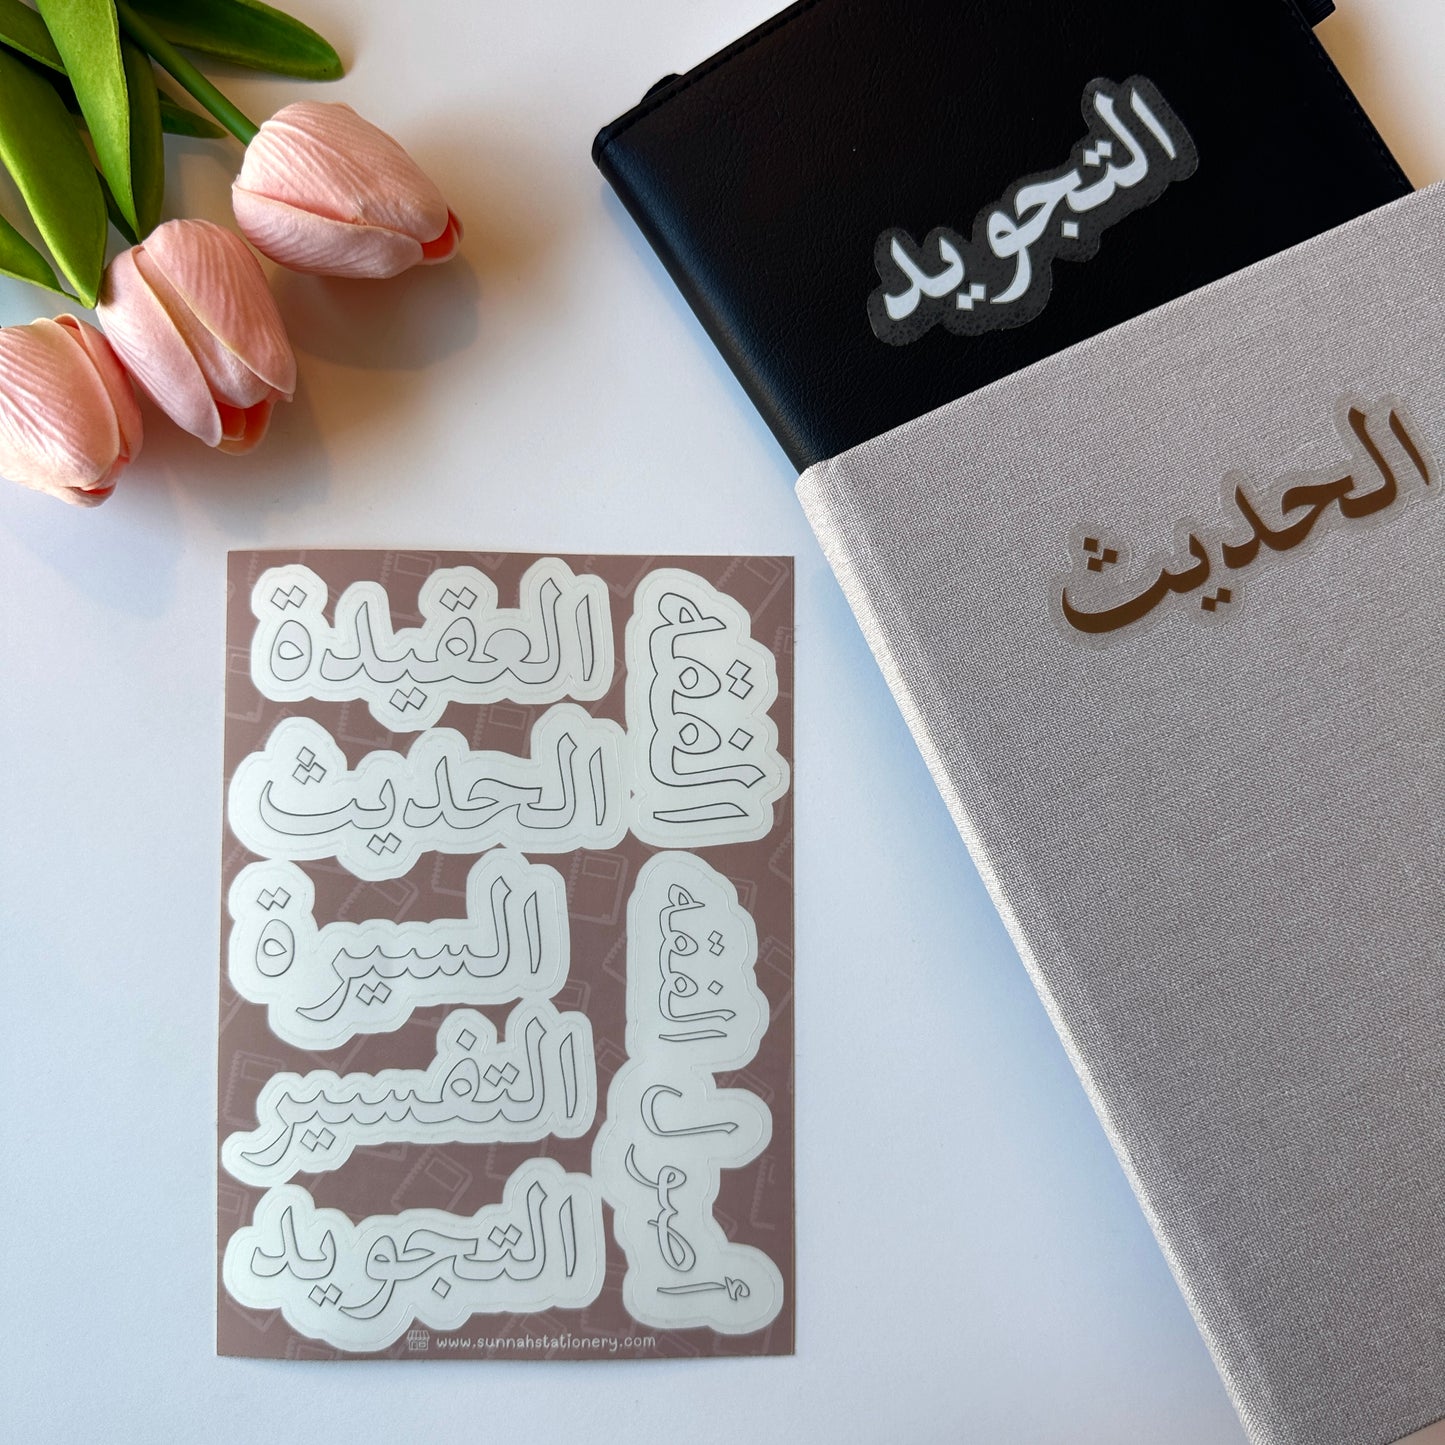 التجويد
الحديث
العقيدة
الحديث
السيرة
التفسير
التجويد
الفقه
أصول الفقه
www.sunnahstationery.com